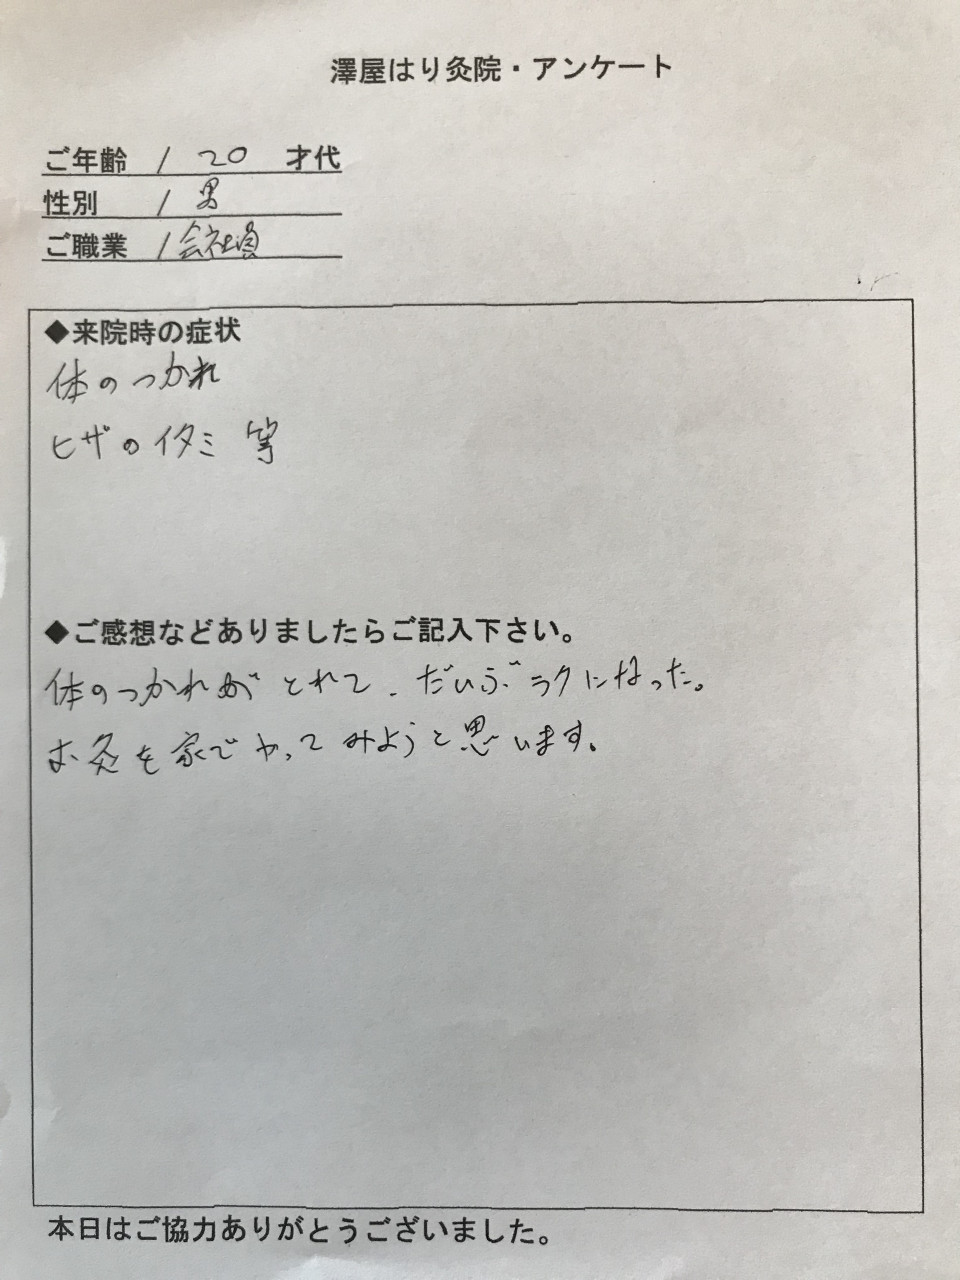 澤屋はり灸院・アンケート
ご年齢 / 20 才代
性別 / 男
ご職業 / 会社員
◆来院時の症状
体のつかれ
ヒザのイタミ 等
◆ご感想などありましたらご記入下さい。
体のつかれがとれて、だいぶラクになった。
お灸を家でやってみようと思います。
本日はご協力ありがとうございました。